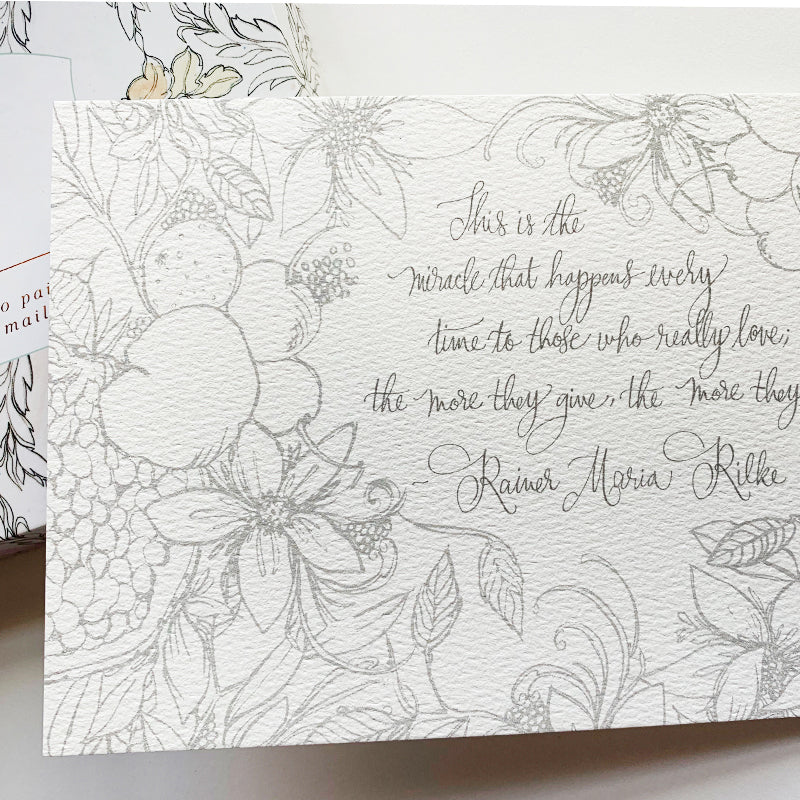 o pai
mail
This is the
miracle that happens every
time to those who really love;
the more they give, the more they
~ Rainer Maria Rilke